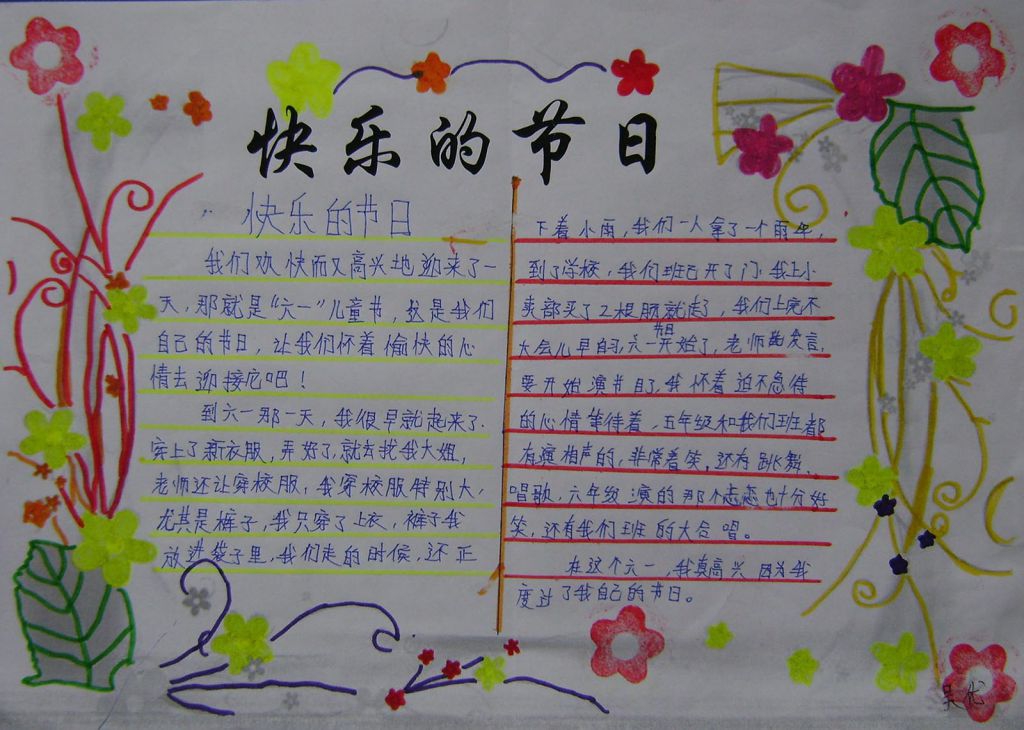 快乐的节日
快乐的节日
我们欢快而又高兴地迎来了一
天，那就是“六一”儿童节，这是我们
自己的节日，让我们怀着愉快的心
情去迎接它吧！
到六一那一天，我很早就起来了.
穿上了新衣服，弄好了，就去找我大姐，
老师还让穿校服，我穿校服特别大，
尤其是裤子，我只穿了上衣，裤子我
放进袋子里，我们走的时候，还正
下着小雨，我们一人拿了一个雨伞，
到了学校，我们班已开了门.我上小
卖部买了2根肠就走了，我们上完不
大会儿早自习，六一节目开始了，老师的发言，
要开始演节目了，我怀着迫不急待
的心情等待着，五年级和我们班都
有演相声的，非常着笑，还有跳舞、
唱歌，六年级演的那个忐忑也十分好
笑，还有我们班的大合唱。
在这个六一，我真高兴因为我
度过了我自己的节日。
吴优